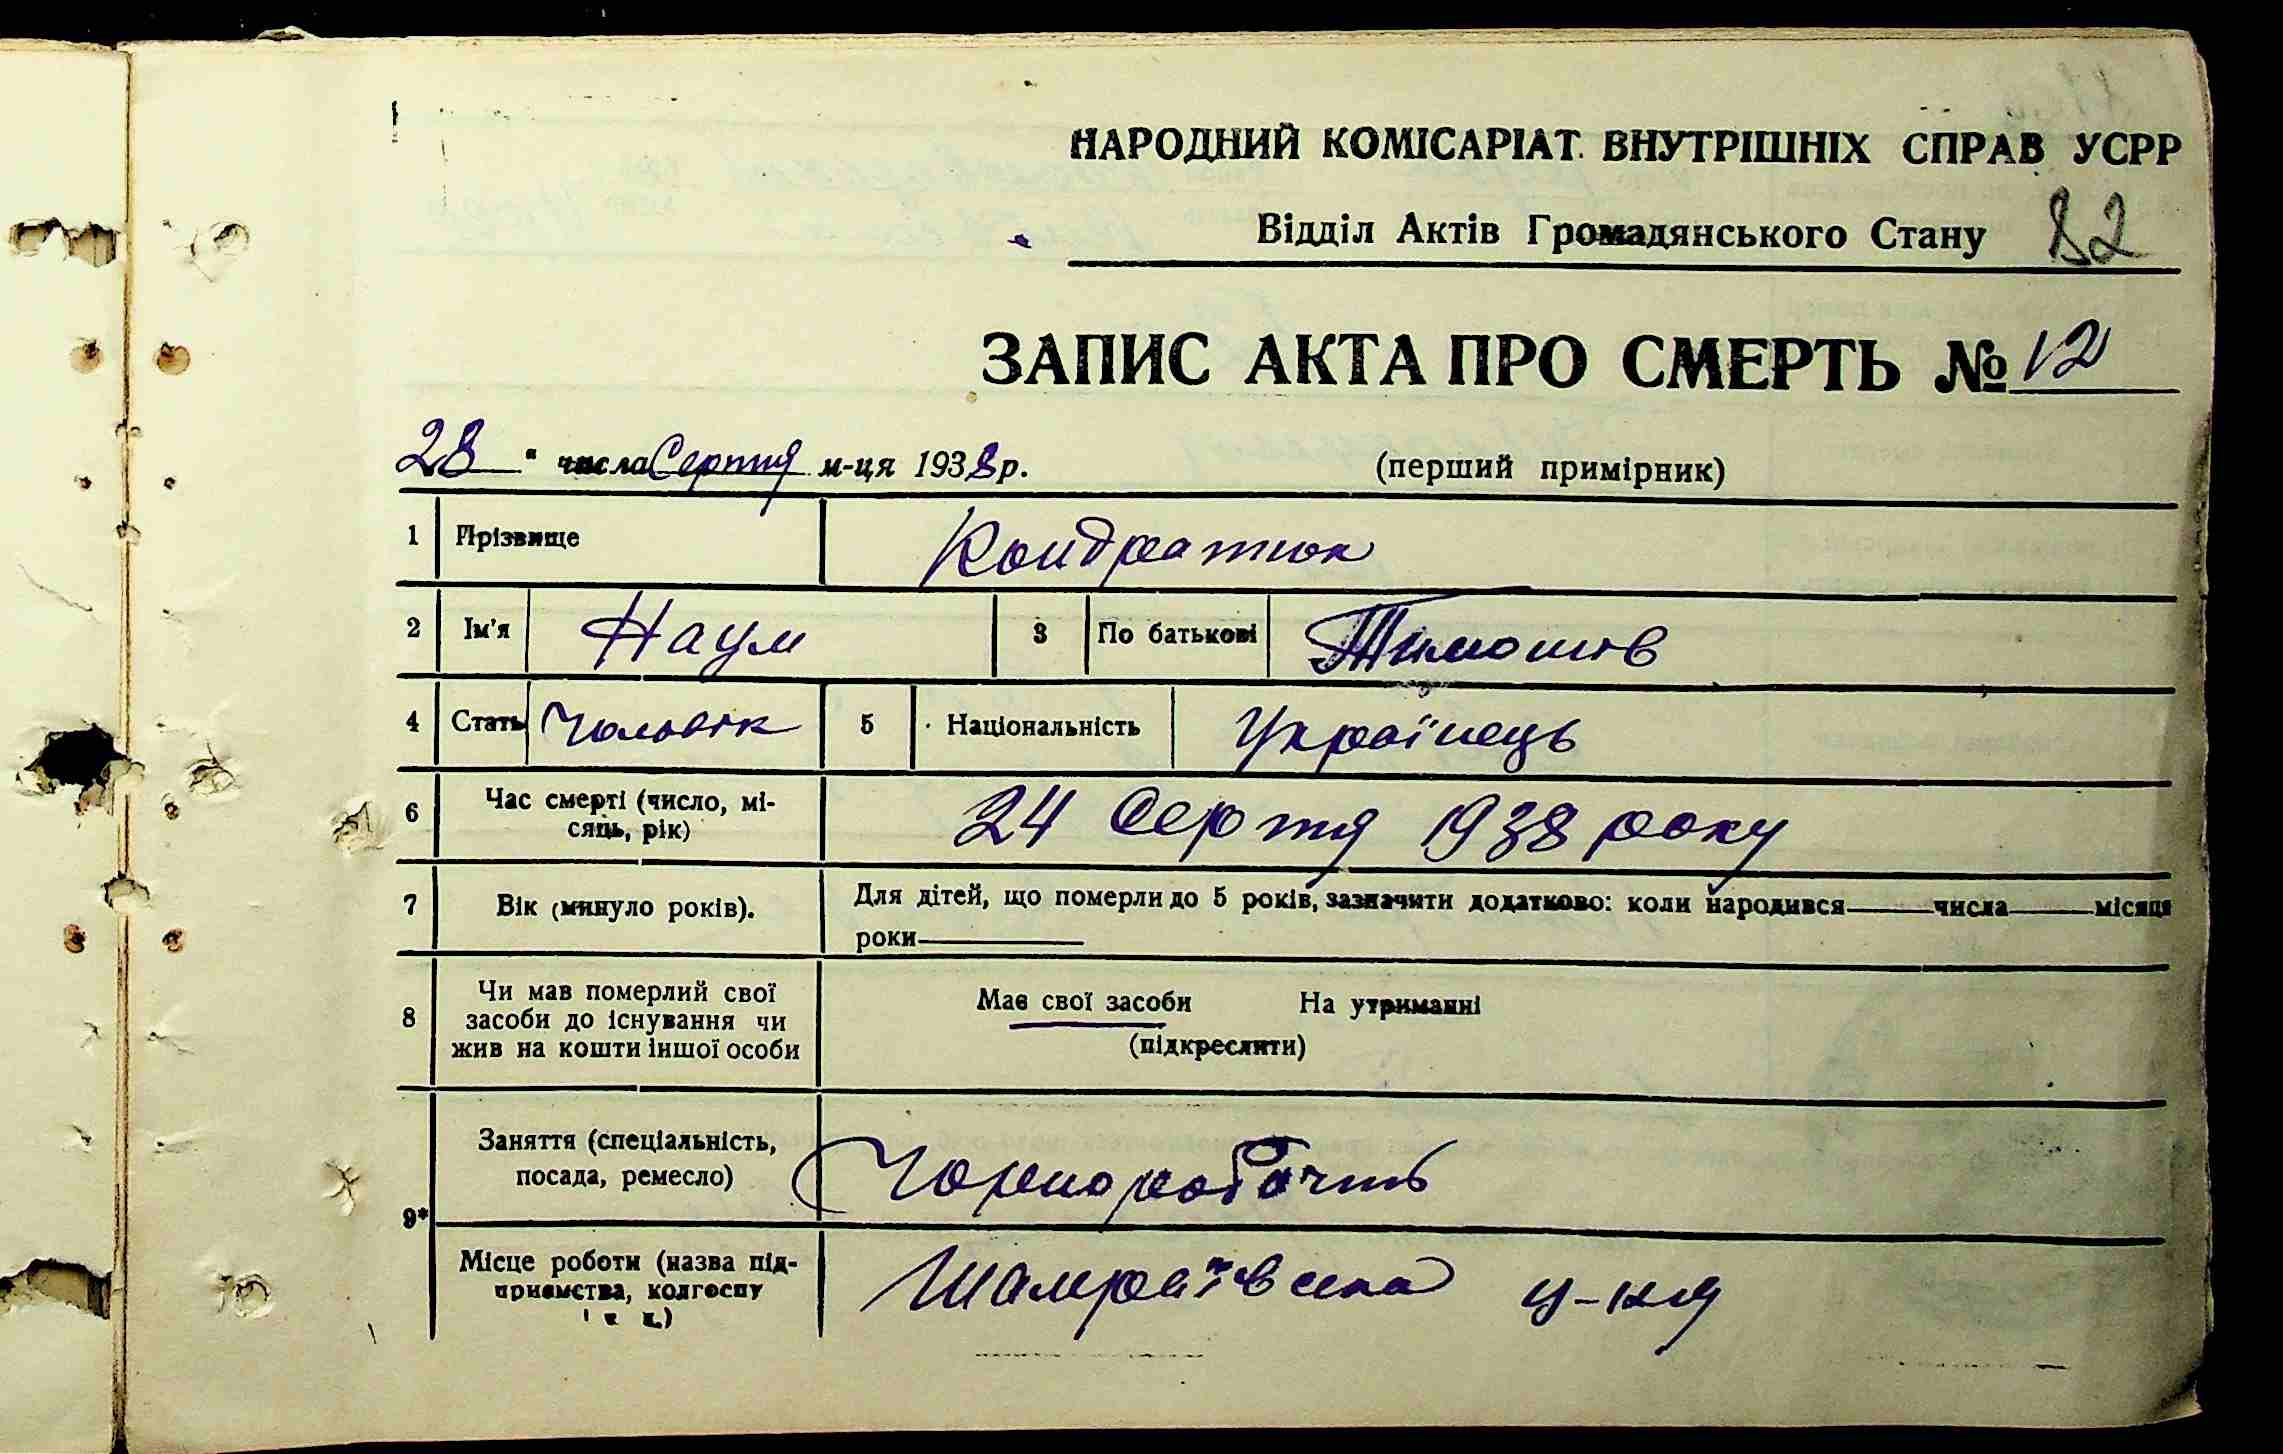 НАРОДНИЙ КОМІСАРІАТ ВНУТРІШНІХ СПРАВ УСРР
Відділ Актів Громадянського Стану 82
ЗАПИС АКТА ПРО СМЕРТЬ № 12
28 " числа Серпня м-ця 1938 р. (перший примірник)
1 Прізвище Кондратюк
2 Ім'я Наум 3 По батькові Тимошів
4 Стать Чоловік 5 Національність Українець
6 Час смерті (число, мі-
сяць, рік) 24 Серпня 1938 року
7 Вік (минуло років). Для дітей, що померли до 5 років, зазначити додатково: коли народився числа місяця
роки
8 Чи мав померлий свої
засоби до існування чи
жив на кошти іншої особи Має свої засоби На утриманні
(підкреслити)
9* Заняття (спеціальність,
посада, ремесло) Чорноробочть
Місце роботи (назва під-
приємства, колгоспу
і т. д.) Шамраївська ц-ня